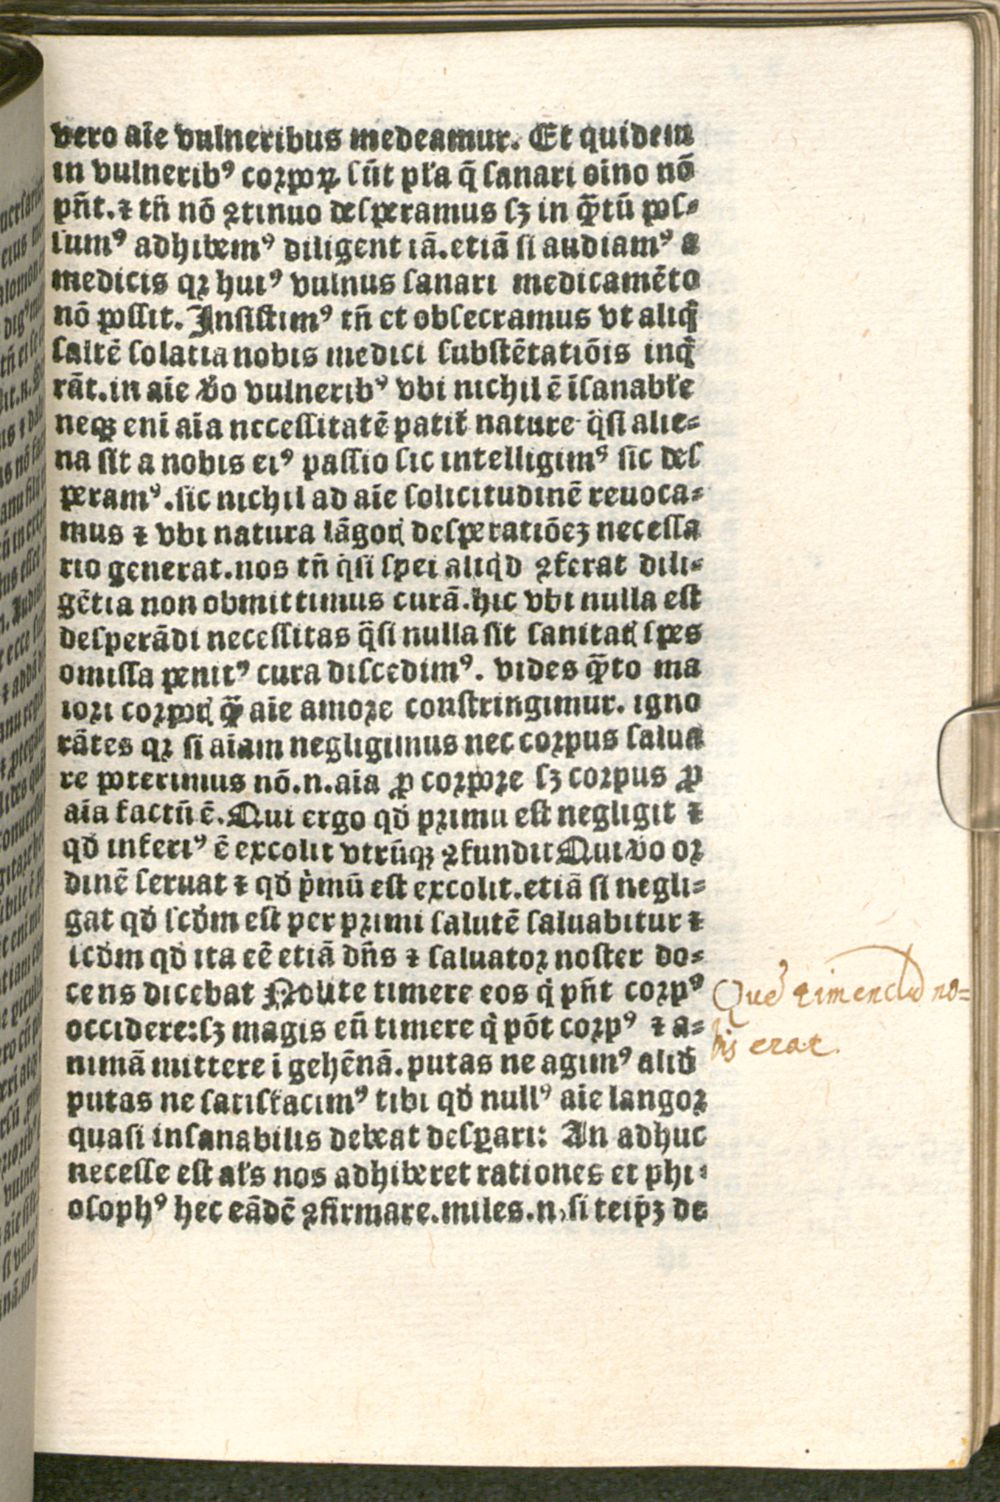 vero aīe vulneribus medeamur. Et quidem
in vulnerib⁹ corpoꝝ sūt pɫa q̄ sanari oīno nō
pn̄t. ⁊ tn̄ nō ꝯtinuo desperamus sꝫ in q̄ꝫtū pos⸗
sum⁹ adhibem⁹ diligent iā. etiā si audiam⁹ a
medicis qꝛ hui⁹ vulnus sanari medicamēto
nō possit. Insistim⁹ tn̄ et obsecramus vt aliq̄
saltē solatia nobis medici substētatiōis inq̄
rāt. in aīe ꝟo vulnerib⁹ vbi nichil ē īsanabɫe
neqꝫ enī aīa necessitatē patiť nature q̄si alie⸗
na sit a nobis ei⁹ passio sic intelligim⁹ sic des
peram⁹. sic nichil ad aīe solicitudinē reuoca⸗
mus ⁊ vbi natura lāgorꝭ desperatiōeꝫ necessa
rio generat. nos tn̄ q̄si spei aliqͥd ꝯferat dili⸗
gētia non obmittimus curā. hic vbi nulla est
desperādi necessitas q̄si nulla sit sanitatꝭ spes
omissa penit⁹ cura discedim⁹. vides q̄ꝫto ma
iori corporꝭ q̄ꝫ aīe amore constringimur. igno
rātes qꝛ si aīam negligimus nec corpus salua
re poterimus nō. n. aīa ꝓ corpore sꝫ corpus ꝓ
aīa factū ē. Qui ergo qd̄ primū est negligit ⁊
qd̄ inferi⁹ ē excolit vtrūqꝫ ꝯfundit Qui ꝟo or
dinē seruat ⁊ qd̄ pͥmū est excolit. etiā si negli⸗
gat qd̄ scd̄m est per primi salutē saluabitur ⁊
scd̄m qd̄ ita eē etiā dn̄s ⁊ saluator noster do⸗
cens dicebat Nolite timere eos qͥ pn̄t corp⁹
occidere: sꝫ magis eū timere qͥ pōt corp⁹ ⁊ a⸗
nimā mittere ī gehēnā. putas ne agim⁹ aliqͥd
putas ne satisfacim⁹ tibi qd̄ null⁹ aīe langor
quasi insanabilis debeat desꝑari: An adhuc
necesse est aɫs nos adhiberet rationes et phi⸗
osoph⁹ hec eādē ꝯfirmare. miles. n. si teipꝫ de
Que timendū no=
bis erat.